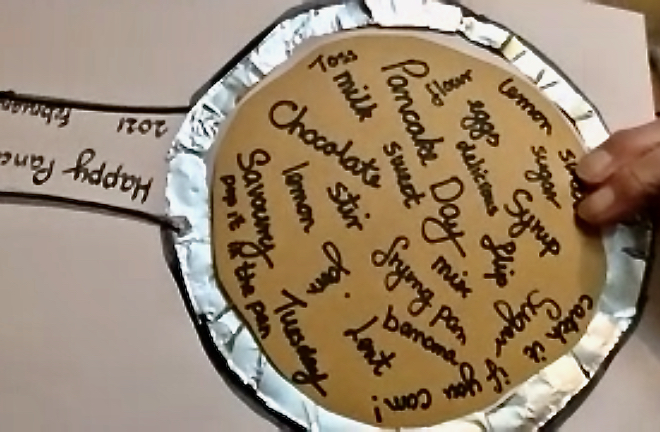 Toss
milk
Pancake Day
flour
eggs
delicious
lemon
sugar
Chocolate
sweet
Syrup
flip
stir
lemon
Savoury
pop it in the pan
mix
frying pan
Jam.
banana
Sugar
Tuesday
Lent
catch it
if you can!
Happy Panc
february
2021